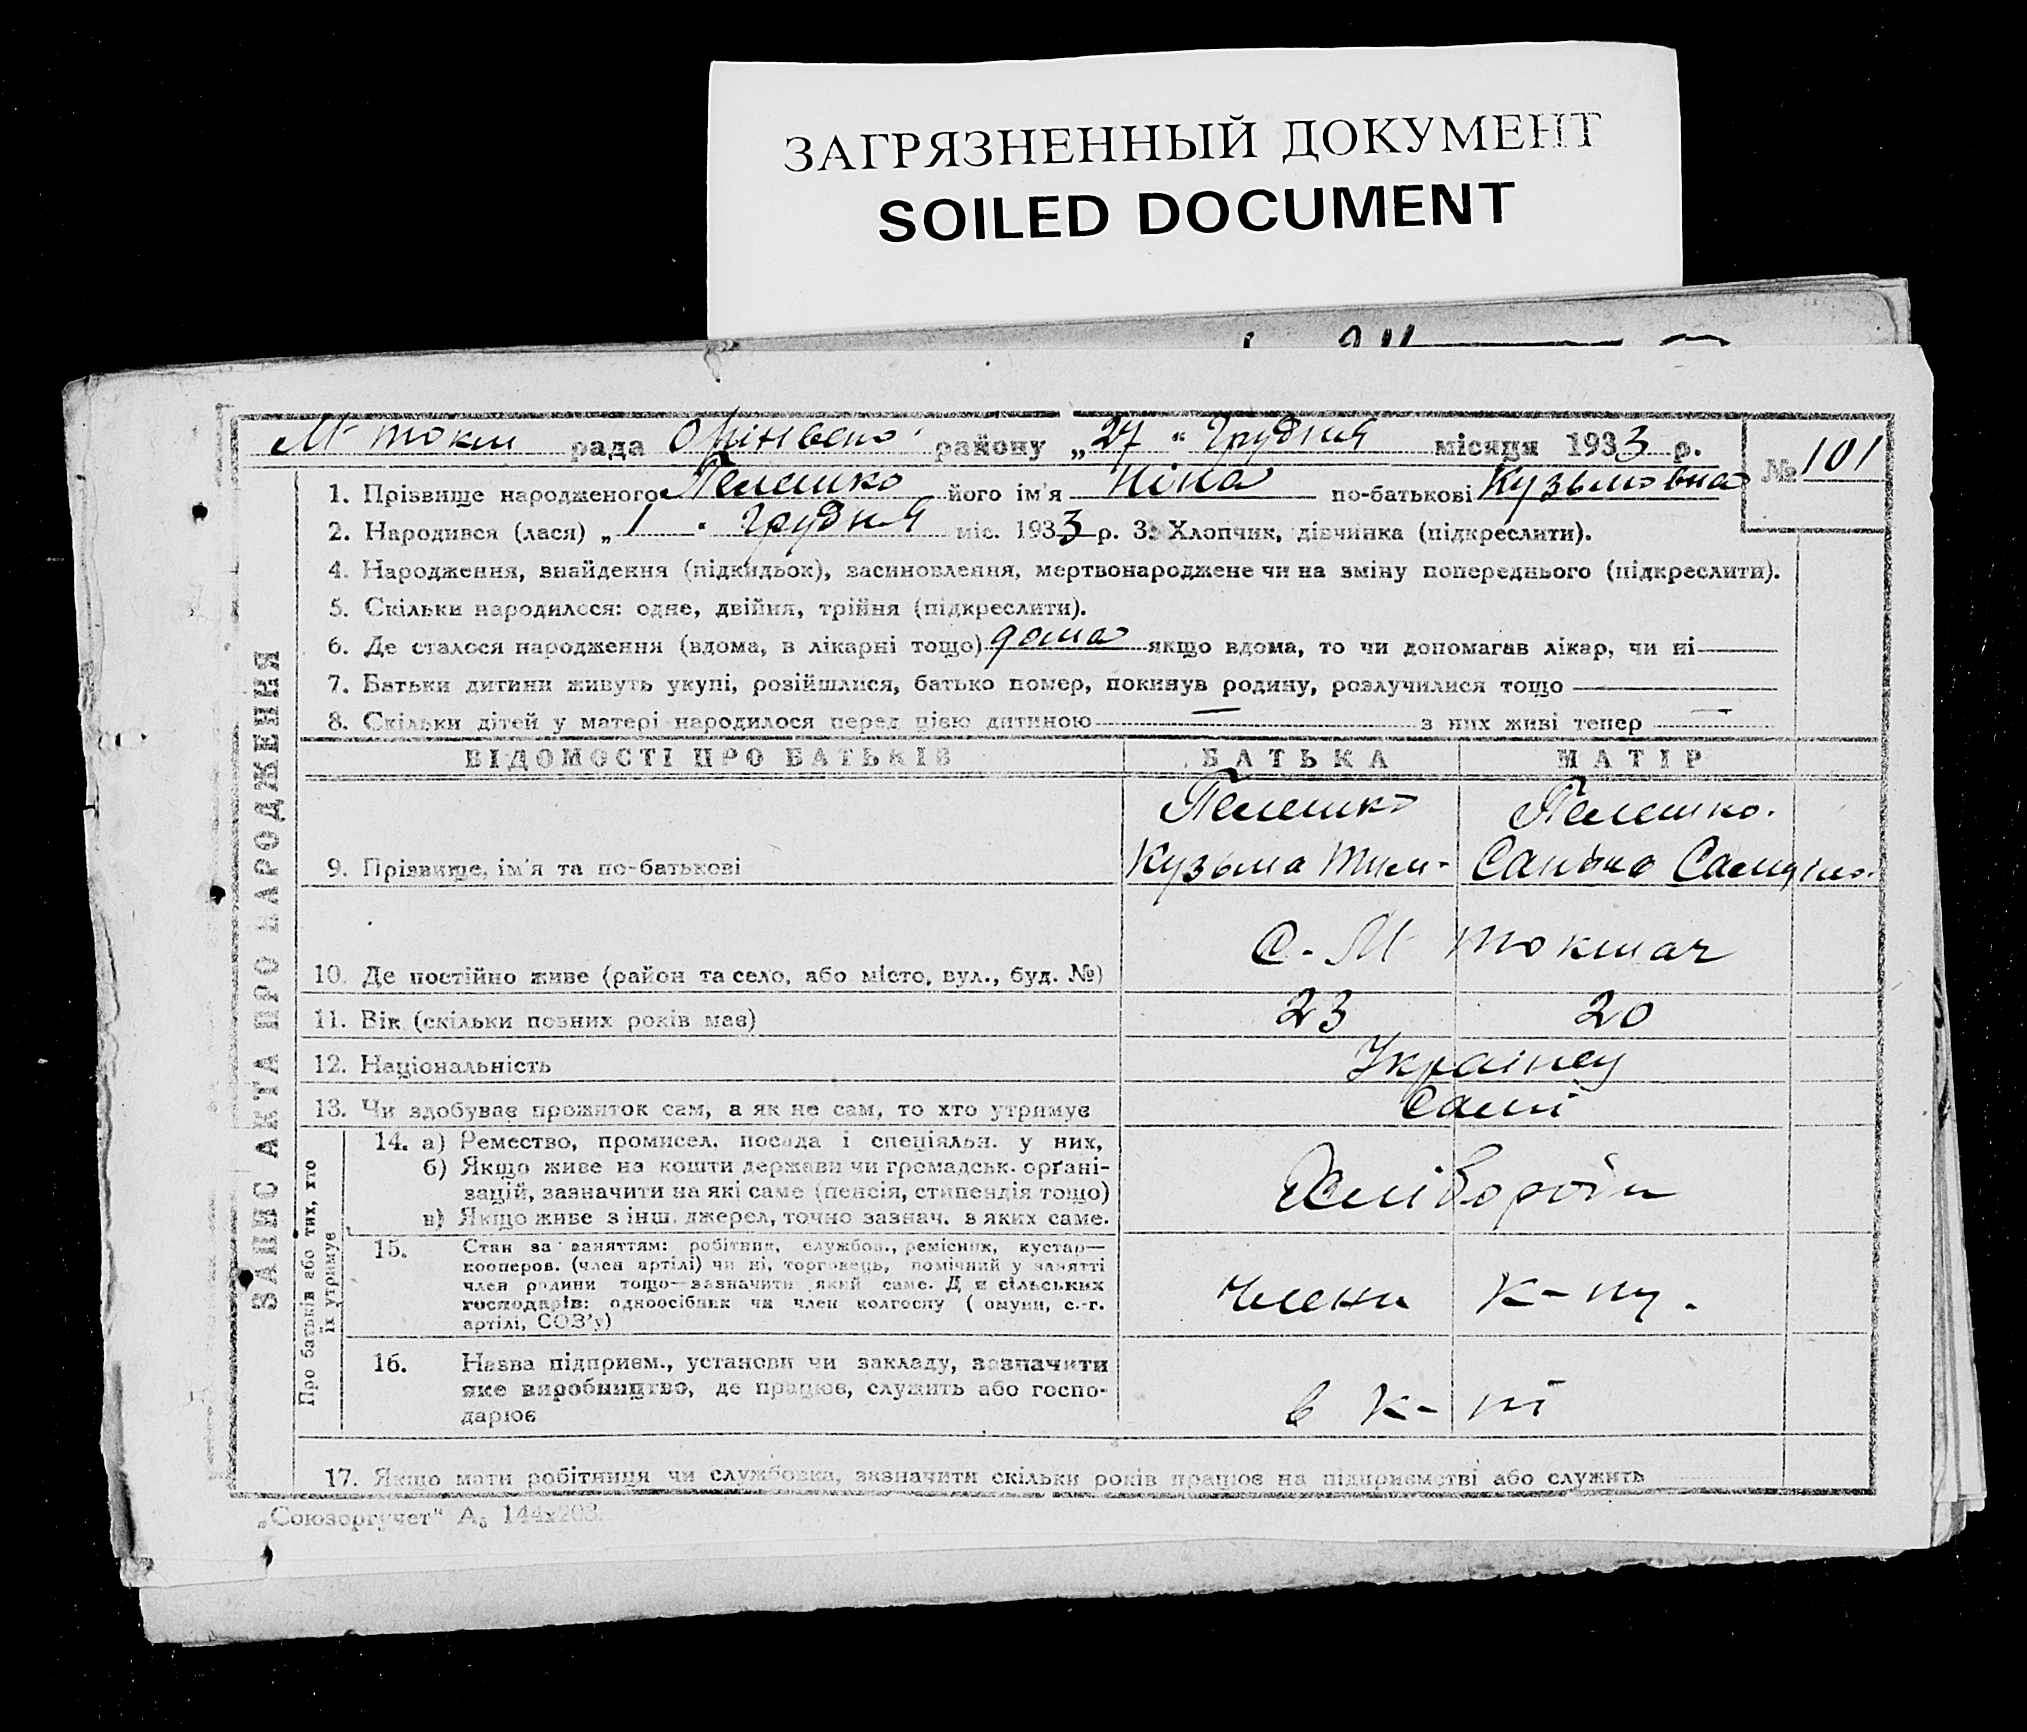 ЗАГРЯЗНЕННЫЙ ДОКУМЕНТ
SOILED DOCUMENT
М- токм рада району „27“ Грудня місяця 1933 р.
№ 101
1. Прізвище народженого Пелешко його ім'я Ніна по-батькові Кузьмовна
2. Народився (лася) „1 " Грудня міс. 1933 р. 3. Хлопчик, дівчинка (підкреслити).
4. Народження, знайдення (підкидьок), засиновлення, мертвонароджене чи на зміну попереднього (підкреслити).
5. Скільки народилося: одне, двійня, трійня (підкреслити).
6. Де сталося народження (вдома, в лікарні тощо) дома якщо вдома, то чи допомагав лікар, чи ні
7. Батьки дитини живуть укупі, розійшлися, батько помер, покинув родину, розлучилися тощо
8. Скільки дітей у матері народилося перед цією дитиною — з них живі тепер —
ЗАПИС АКТА ПРО НАРОДЖЕННЯ
ВІДОМОСТІ ПРО БАТЬКІВ БАТЬКА МАТІР
Пелешко Пелешко.
9. Прізвище, ім'я та по-батькові Кузьма Тим-
10. Де постійно живе (район та село, або місто, вул., буд. №) С. М- токмач
11. Вік (скільки повних років має) 23 20
12. Національність Українец
13. Чи здобуває прожиток сам, а як не сам, то хто утримує Самі
Про батьків або тих, хто
їх утримує
14. а) Ремество, промисел, посада і спеціяльн. у них,
б) Якщо живе на кошти держави чи громадськ. орґані-
зацій, зазначити на які саме (пенсія, стипендія тощо)
в) Якщо живе з інш. джерел, точно зазнач. з яких саме.
Хліборобн
15. Стан за заняттям: робітник, службов., ремісник, кустар—
кооперов. (член артілі) чи ні, торговець, помічний у занятті
член родини тощо—зазначити який саме. Для сільських
господарів: одноосібник чи член колгоспу (комуни, с.-г.
артілі, СОЗ'у)
члени к-пу.
16. Назва підприєм., установи чи закладу, зазначити
яке виробництво, де працює, служить або госпо-
дарює
в к-пі
17. Якщо мати робітниця чи службовка, зазначити скільки років працює на підприємстві або служить
„Союзоргучет" А₅ 144х203.